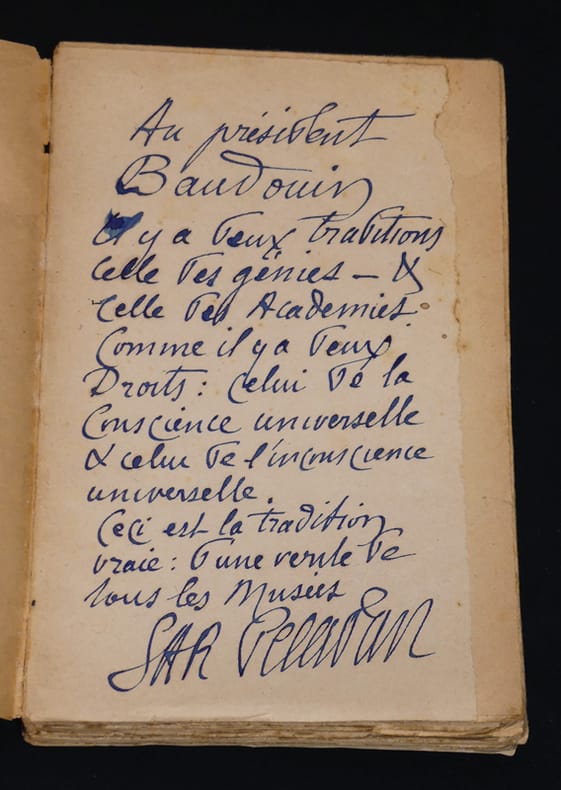 Au président
Baudouin
il y a deux traditions
celle des génies — &
celle des Academies
Comme il y a deux
Droits : celui de la
Conscience universelle
& celui de l'inconscience
universelle.
Ceci est la tradition
vraie : d'une verite de
tous les Musées
SAR Peladan